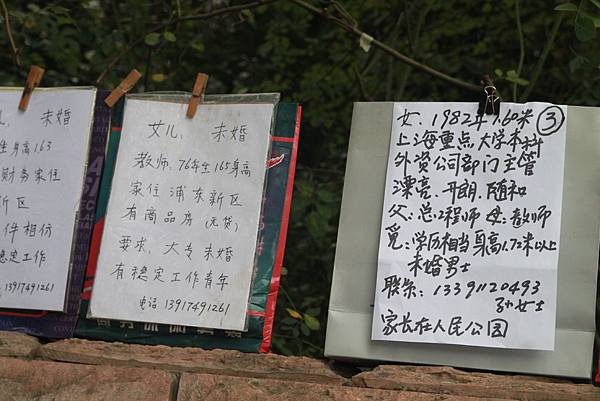 儿： 未婚
生身高163
财务家住
新区
件相仿
稳定工作
13917491261
女儿： 未婚
教师：76年生 165身高
家住 浦东新区
有商品房（无贷）
要求：大专 未婚
有稳定工作青年
电话 13917491261
③
女：1982年 1.60米
上海重点大学本科
外资公司部门主管
漂亮、开朗、随和
父：总工程师 母：教师
觅：学历相当 身高1.72米以上
未婚男士
联系：13391120493
孙女士
家长在人民公园